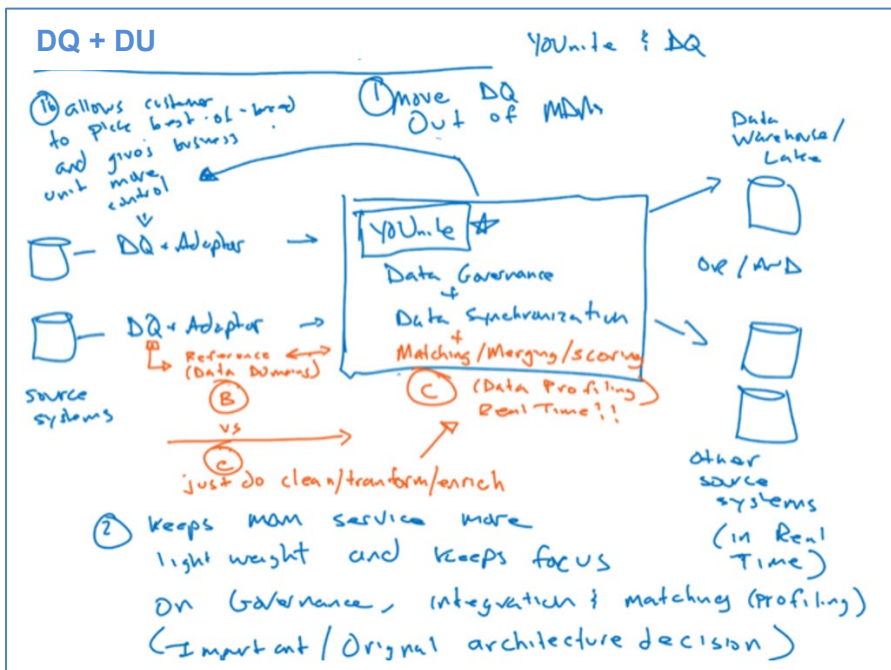 DQ + DU
YOUnite & DQ
1b allows customer
to pick best-of-breed
and gives business
unit more
control
1 move DQ
Out of MDM
Data
Warehouse/
Lake
DQ + Adapter
YOUnite
Data Governance
+
Data Synchronization
+
Matching/Merging/scoring
OR / AND
DQ + Adaptor
Reference
(Data Domains)
B
C
(Data Profiling)
Real Time!!
source
systems
vs
C
just do clean/tranform/enrich
other
source
systems
(in Real
Time)
2 keeps MDM service more
light weight and keeps focus
on Governance, integration & matching (profiling)
(Important / Orignal architecture decision)